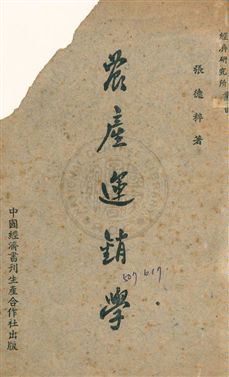 經濟研究所叢
張德粹著
農產運銷學
中國經濟書刊生產合作社出版